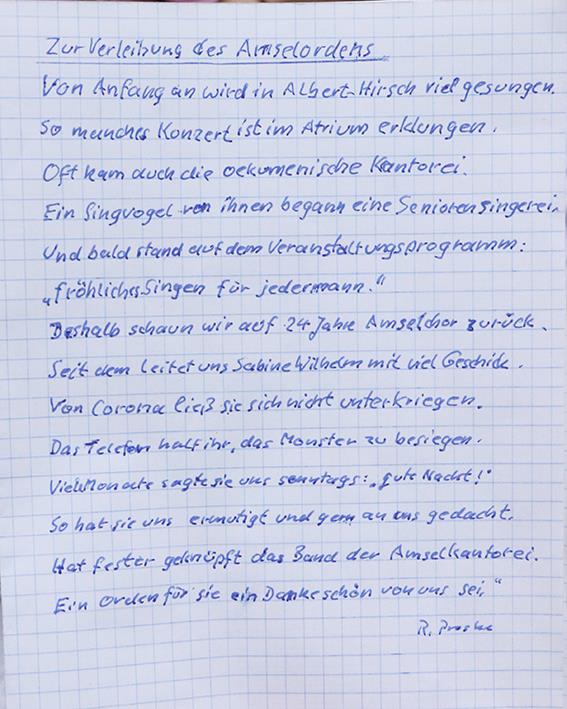 Zur Verleihung des Amselordens
Von Anfang an wird in Albert-Hirsch viel gesungen.
So manches Konzert ist im Atrium erklungen.
Oft kam auch die oekumenische Kantorei.
Ein Singvogel von ihnen begann eine Seniorensingerei.
Und bald stand auf dem Veranstaltungsprogramm:
„fröhliches Singen für jedermann."
Deshalb schaun wir auf 24 Jahre Amselchor zurück.
Seit dem leitet uns Sabine Wilhelm mit viel Geschick.
Von Corona ließ sie sich nicht unterkriegen.
Das Telefon half ihr, das Monster zu besiegen.
Viele Monate sagte sie uns sonntags: „gute Nacht!"
So hat sie uns ermutigt und gern an uns gedacht.
Hat fester geknüpft das Band der Amselkantorei.
Ein Orden für sie ein Dankeschön von uns sei."
R.